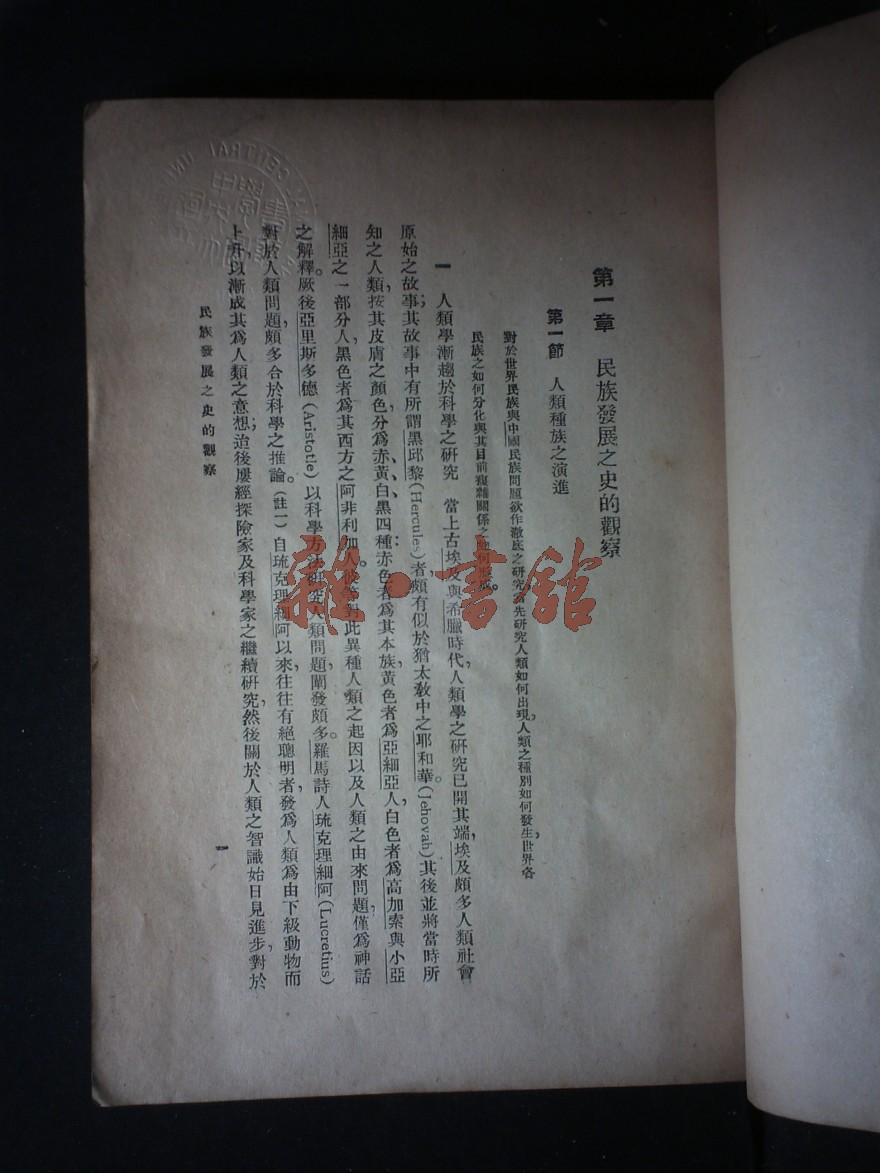 第一章　民族發展之史的觀察
第一節　人類種族之演進
對於世界民族與中國民族問題欲作澈底之研究，當先研究人類如何出現，人類之種別如何發生，世界各
民族之如何分化與其目前複雜關係之如何形成。
一　人類學漸趨於科學之研究　當上古埃及與希臘時代，人類學之研究已開其端，埃及頗多人類社會
原始之故事；其故事中有所謂黑邱黎(Hercules)者，頗有似於猶太敎中之耶和華(Jehovah)其後並將當時所
知之人類，按其皮膚之顏色，分爲赤、黃、白、黑四種：赤色者爲其本族，黃色者爲亞細亞人，白色者爲高加索與小亞
細亞之一部分人，黑色者爲其西方之阿非利加人。彼等對此異種人類之起因以及人類之由來問題，僅爲神話
之解釋。厥後亞里斯多德(Aristotle)以科學方法研究人類問題，闡發頗多。羅馬詩人琉克理細阿(Lucretius)
對於人類問題，頗多合於科學之推論。（註一）自琉克理細阿以來，往往有絕聰明者，發爲人類爲由下級動物而
上升，以漸成其爲人類之意想；迨後屢經探險家及科學家之繼續研究，然後關於人類之智識始日見進步，對於
民族發展之史的觀察
一
雜·書館
CENTRAL UNI